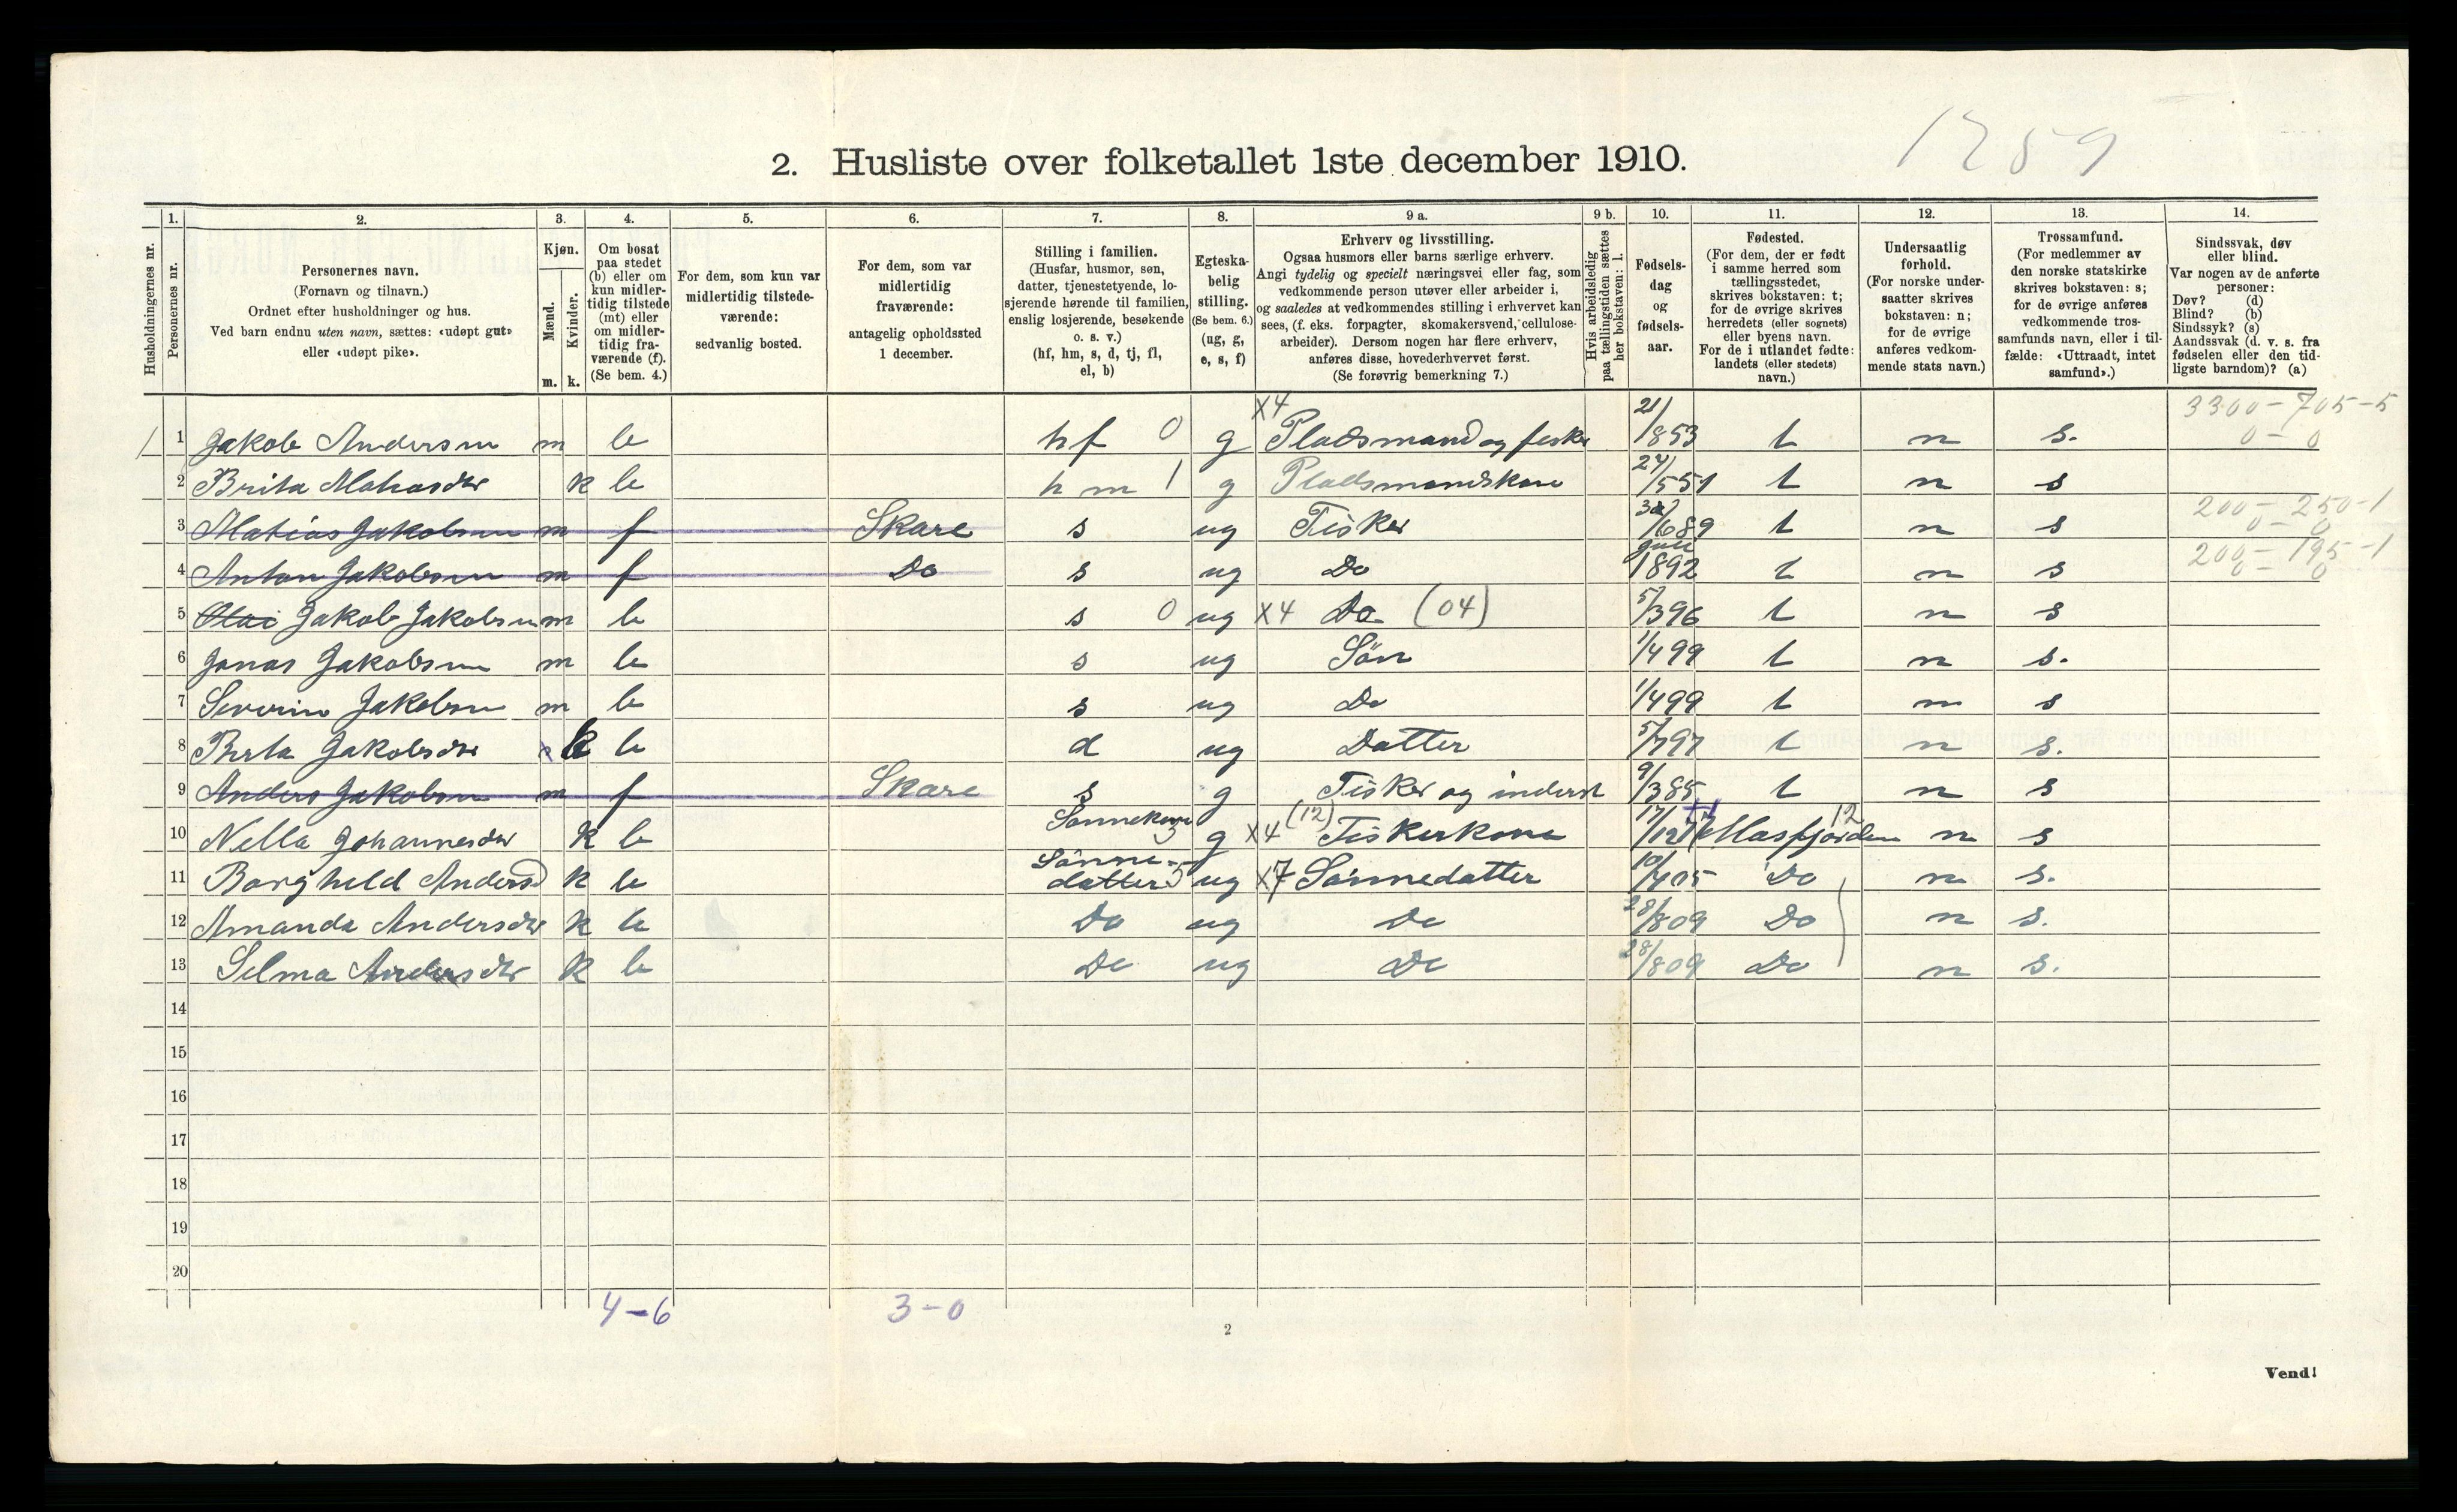 1259
2. Husliste over folketallet 1ste december 1910.
Husholdningernes nr.
1. Personernes nr.
2. Personernes navn. (Fornavn og tilnavn.) Ordnet efter husholdninger og hus. Ved barn endnu uten navn, sættes: «udøpt gut» eller «udøpt pike».
3. Kjøn. Mænd. m. Kvinder. k.
4. Om bosat paa stedet (b) eller om kun midlertidig tilstede (mt) eller om midlertidig fraværende (f). (Se bem. 4.)
5. For dem, som kun var midlertidig tilstedeværende: sedvanlig bosted.
6. For dem, som var midlertidig fraværende: antagelig opholdssted 1 december.
7. Stilling i familien. (Husfar, husmor, søn, datter, tjenestetyende, losjerende hørende til familien, enslig losjerende, besøkende o. s. v.) (hf, hm, s, d, tj, fl, el, b)
8. Egteskabelig stilling. (Se bem. 6.) (ug, g, e, s, f)
9 a. Erhverv og livsstilling. Ogsaa husmors eller barns særlige erhverv. Angi tydelig og specielt næringsvei eller fag, som vedkommende person utøver eller arbeider i, og saaledes at vedkommendes stilling i erhvervet kan sees, (f. eks. forpagter, skomakersvend, cellulosearbeider). Dersom nogen har flere erhverv, anføres disse, hovederhvervet først. (Se forøvrig bemerkning 7.)
9 b. Hvis arbeidsledig paa tællingstiden sættes her bokstaven: l.
10. Fødselsdag og fødselsaar.
11. Fødested. (For dem, der er født i samme herred som tællingsstedet, skrives bokstaven: t; for de øvrige skrives herredets (eller sognets) eller byens navn. For de i utlandet fødte: landets (eller stedets) navn.)
12. Undersaatlig forhold. (For norske undersaatter skrives bokstaven: n; for de øvrige anføres vedkommende stats navn.)
13. Trossamfund. (For medlemmer av den norske statskirke skrives bokstaven: s; for de øvrige anføres vedkommende trossamfunds navn, eller i tilfælde: «Uttraadt, intet samfund».)
14. Sindssvak, døv eller blind. Var nogen av de anførte personer: Døv? (d) Blind? (b) Sindssyk? (s) Aandssvak (d. v. s. fra fødselen eller den tidligste barndom)? (a)
1 1 Jakob Andersen m b hf 0 g X4 Pladsmand og fisker 21/853 t n s. 3300-705-5 0-0
2 k b hm 1 g Pladsmandskone 24/551 t n s
3 Matias Jakobsen m f Skare s ug Fisker 30/689 t n s 200-250-1 0-0
4 Anton Jakobsen m f Do s ug Do juli 1892 t n s 200-195-1 0-0
5 Olai Jakob Jakobsen m b s 0 ug X4 Do (04) 5/396 t n s
6 Jonas Jakobsen m b s ug Søn 1/499 t n s.
7 Severin Jakobsen m b s ug Do 1/499 t n s
8 Berta Jakobsdtr k b d ug Datter 5/797 t n s.
9 Anders Jakobsen m f Skare s g Fisker og inderst 9/385 t n s
10 Nella Johannesdtr k b Sønnekone 3 g X4 (12) Fiskerkone 17/12 Masfjorden 12 n s
11 Borghild Andersd k b Sønnedatter 5 ug X7 Sønnedatter 10/405 Do n s.
12 Amanda Andersdtr k b Do ug Do 28/809 Do n s.
13 Selma Andersdtr k b Do ug Do 28/809 Do n s.
14
15
16
17
18
19
20
4-6 3-0
2
Vend!